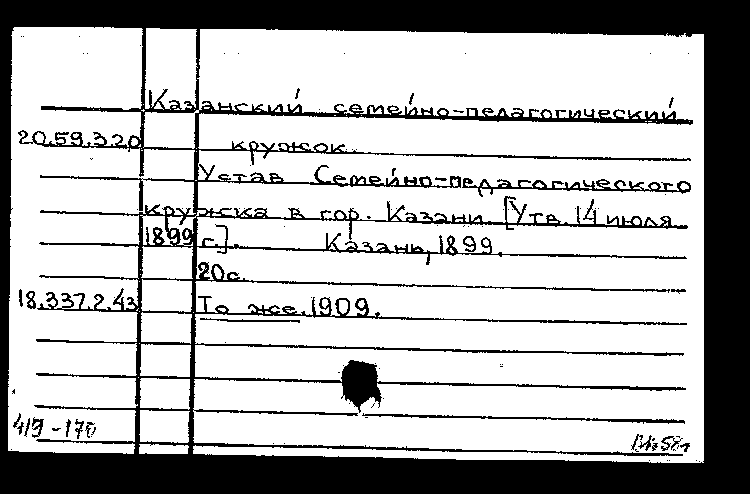 Казанский семейно-педагогический
20.59.3.20 кружок.
Устав Семейно-педагогического
кружка в гор. Казани. [Утв. 14 июля
1899 г.]. Казань, 1899.
20с.
18.337.2.43 То же. 1909.
419-170